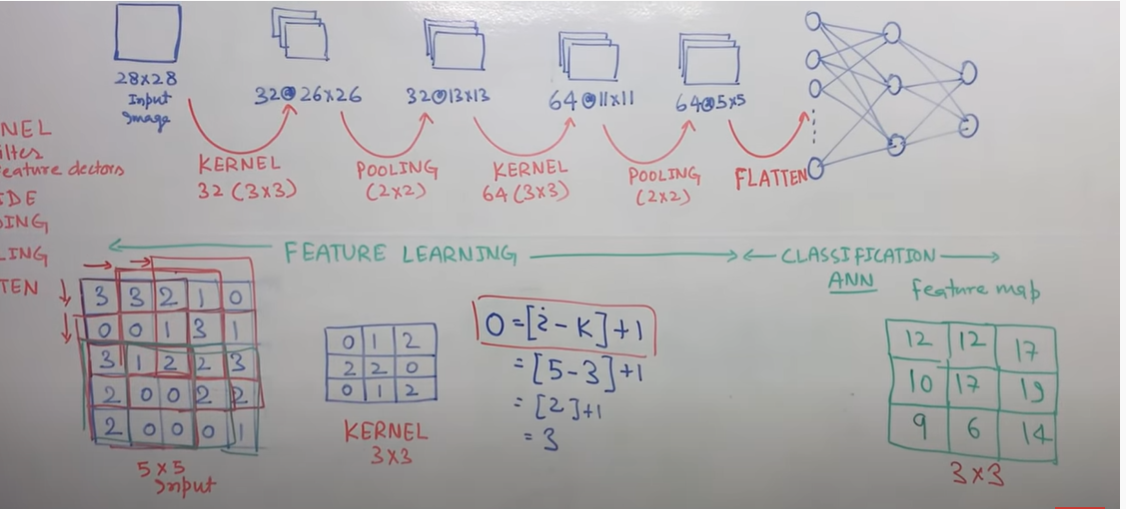 28x28
Input
Image
32@26x26
32@13x13
64@11x11
64@5x5
KERNEL
32 (3x3)
POOLING
(2x2)
KERNEL
64 (3x3)
POOLING
(2x2)
FLATTEN
NEL
ilter
eature dectors
IDE
DING
LING
TEN
FEATURE LEARNING
CLASSIFICATION
ANN
3 3 2 1 0
0 0 1 3 1
3 1 2 2 3
2 0 0 2 2
2 0 0 0 1
5x5
Input
0 1 2
2 2 0
0 1 2
KERNEL
3x3
O=[i-K]+1
=[5-3]+1
=[2]+1
=3
feature map
12 12 17
10 17 19
9 6 14
3x3